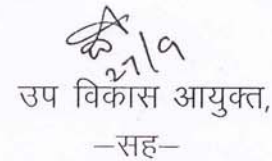 27/9
उप विकास आयुक्त,
–सह–